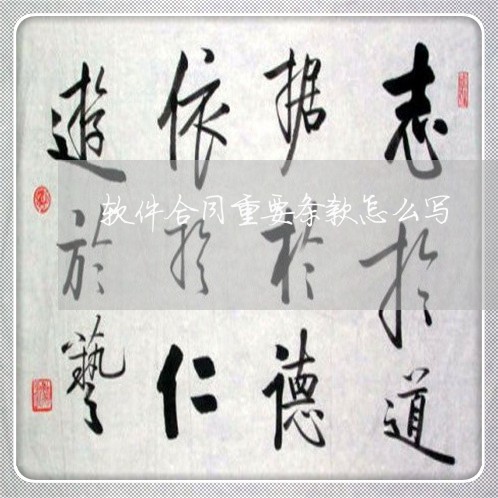 志於道
据於德
依於仁
遊於藝
软件合同重要条款怎么写